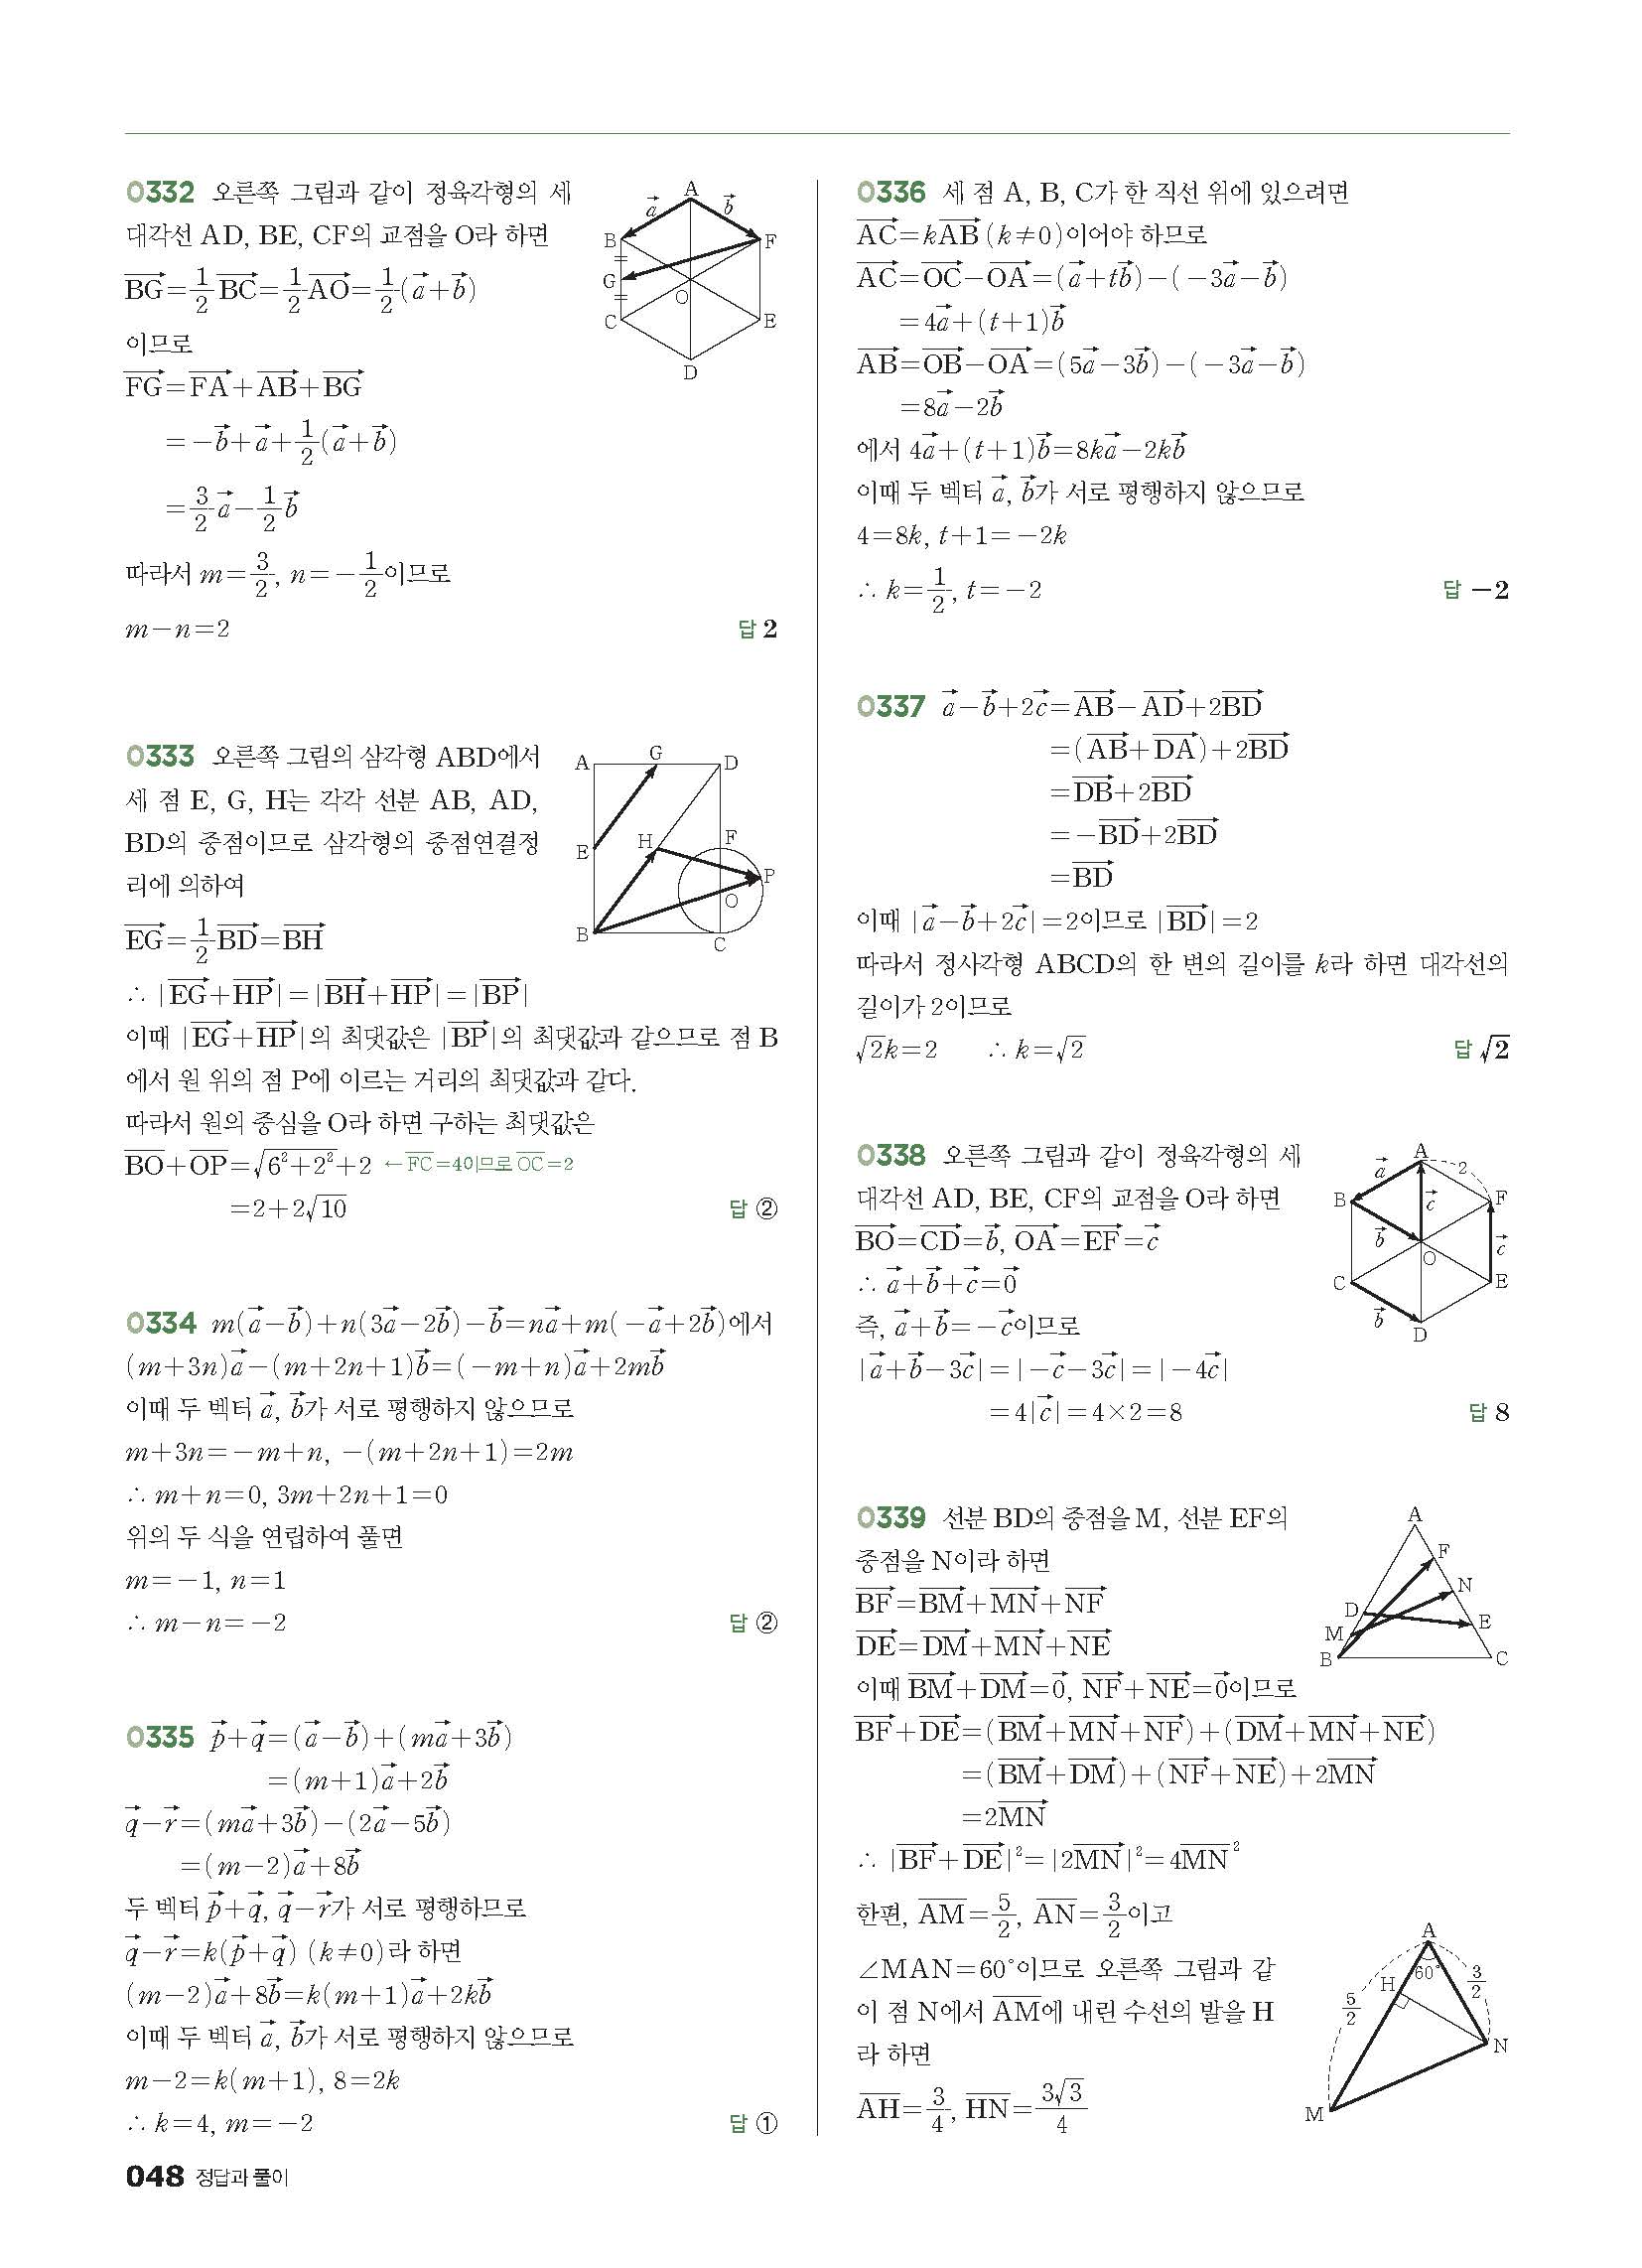 0332 오른쪽 그림과 같이 정육각형의 세
대각선 AD, BE, CF의 교점을 O라 하면
$\overrightarrow{BG}=\frac{1}{2}\overrightarrow{BC}=\frac{1}{2}\overrightarrow{AO}=\frac{1}{2}(\vec{a}+\vec{b})$
이므로
$\overrightarrow{FG}=\overrightarrow{FA}+\overrightarrow{AB}+\overrightarrow{BG}$
$=-\vec{b}+\vec{a}+\frac{1}{2}(\vec{a}+\vec{b})$
$=\frac{3}{2}\vec{a}-\frac{1}{2}\vec{b}$
따라서 $m=\frac{3}{2}$, $n=-\frac{1}{2}$이므로
$m-n=2$ 답 2
A
$\vec{a}$ $\vec{b}$
B F
G O
C E
D
0333 오른쪽 그림의 삼각형 ABD에서
세 점 E, G, H는 각각 선분 AB, AD,
BD의 중점이므로 삼각형의 중점연결정
리에 의하여
$\overrightarrow{EG}=\frac{1}{2}\overrightarrow{BD}=\overrightarrow{BH}$
∴ $|\overrightarrow{EG}+\overrightarrow{HP}|=|\overrightarrow{BH}+\overrightarrow{HP}|=|\overrightarrow{BP}|$
이때 $|\overrightarrow{EG}+\overrightarrow{HP}|$의 최댓값은 $|\overrightarrow{BP}|$의 최댓값과 같으므로 점 B
에서 원 위의 점 P에 이르는 거리의 최댓값과 같다.
따라서 원의 중심을 O라 하면 구하는 최댓값은
$\overline{BO}+\overline{OP}=\sqrt{6^2+2^2}+2$ ← $\overline{FC}=4$이므로 $\overline{OC}=2$
$=2+2\sqrt{10}$ 답 ②
A G D
E H F
P
O
B C
0334 $m(\vec{a}-\vec{b})+n(3\vec{a}-2\vec{b})-\vec{b}=n\vec{a}+m(-\vec{a}+2\vec{b})$에서
$(m+3n)\vec{a}-(m+2n+1)\vec{b}=(-m+n)\vec{a}+2m\vec{b}$
이때 두 벡터 $\vec{a}$, $\vec{b}$가 서로 평행하지 않으므로
$m+3n=-m+n$, $-(m+2n+1)=2m$
∴ $m+n=0$, $3m+2n+1=0$
위의 두 식을 연립하여 풀면
$m=-1$, $n=1$
∴ $m-n=-2$ 답 ②
0335 $\vec{p}+\vec{q}=(\vec{a}-\vec{b})+(m\vec{a}+3\vec{b})$
$=(m+1)\vec{a}+2\vec{b}$
$\vec{q}-\vec{r}=(m\vec{a}+3\vec{b})-(2\vec{a}-5\vec{b})$
$=(m-2)\vec{a}+8\vec{b}$
두 벡터 $\vec{p}+\vec{q}$, $\vec{q}-\vec{r}$가 서로 평행하므로
$\vec{q}-\vec{r}=k(\vec{p}+\vec{q})$ $(k≠0)$라 하면
$(m-2)\vec{a}+8\vec{b}=k(m+1)\vec{a}+2k\vec{b}$
이때 두 벡터 $\vec{a}$, $\vec{b}$가 서로 평행하지 않으므로
$m-2=k(m+1)$, $8=2k$
∴ $k=4$, $m=-2$ 답 ①
0336 세 점 A, B, C가 한 직선 위에 있으려면
$\overrightarrow{AC}=k\overrightarrow{AB}$ $(k≠0)$이어야 하므로
$\overrightarrow{AC}=\overrightarrow{OC}-\overrightarrow{OA}=(\vec{a}+t\vec{b})-(-3\vec{a}-\vec{b})$
$=4\vec{a}+(t+1)\vec{b}$
$\overrightarrow{AB}=\overrightarrow{OB}-\overrightarrow{OA}=(5\vec{a}-3\vec{b})-(-3\vec{a}-\vec{b})$
$=8\vec{a}-2\vec{b}$
에서 $4\vec{a}+(t+1)\vec{b}=8k\vec{a}-2k\vec{b}$
이때 두 벡터 $\vec{a}$, $\vec{b}$가 서로 평행하지 않으므로
$4=8k$, $t+1=-2k$
∴ $k=\frac{1}{2}$, $t=-2$ 답 −2
0337 $\vec{a}-\vec{b}+2\vec{c}=\overrightarrow{AB}-\overrightarrow{AD}+2\overrightarrow{BD}$
$=(\overrightarrow{AB}+\overrightarrow{DA})+2\overrightarrow{BD}$
$=\overrightarrow{DB}+2\overrightarrow{BD}$
$=-\overrightarrow{BD}+2\overrightarrow{BD}$
$=\overrightarrow{BD}$
이때 $|\vec{a}-\vec{b}+2\vec{c}|=2$이므로 $|\overrightarrow{BD}|=2$
따라서 정사각형 ABCD의 한 변의 길이를 $k$라 하면 대각선의
길이가 2이므로
$\sqrt{2}k=2$ ∴ $k=\sqrt{2}$ 답 $\sqrt{2}$
0338 오른쪽 그림과 같이 정육각형의 세
대각선 AD, BE, CF의 교점을 O라 하면
$\overrightarrow{BO}=\overrightarrow{CD}=\vec{b}$, $\overrightarrow{OA}=\overrightarrow{EF}=\vec{c}$
∴ $\vec{a}+\vec{b}+\vec{c}=\vec{0}$
즉, $\vec{a}+\vec{b}=-\vec{c}$이므로
$|\vec{a}+\vec{b}-3\vec{c}|=|-\vec{c}-3\vec{c}|=|-4\vec{c}|$
$=4|\vec{c}|=4×2=8$ 답 8
A
$\vec{a}$ 2
B $\vec{c}$ F
$\vec{b}$ O $\vec{c}$
C E
$\vec{b}$ D
0339 선분 BD의 중점을 M, 선분 EF의
중점을 N이라 하면
$\overrightarrow{BF}=\overrightarrow{BM}+\overrightarrow{MN}+\overrightarrow{NF}$
$\overrightarrow{DE}=\overrightarrow{DM}+\overrightarrow{MN}+\overrightarrow{NE}$
이때 $\overrightarrow{BM}+\overrightarrow{DM}=\vec{0}$, $\overrightarrow{NF}+\overrightarrow{NE}=\vec{0}$이므로
$\overrightarrow{BF}+\overrightarrow{DE}=(\overrightarrow{BM}+\overrightarrow{MN}+\overrightarrow{NF})+(\overrightarrow{DM}+\overrightarrow{MN}+\overrightarrow{NE})$
$=(\overrightarrow{BM}+\overrightarrow{DM})+(\overrightarrow{NF}+\overrightarrow{NE})+2\overrightarrow{MN}$
$=2\overrightarrow{MN}$
∴ $|\overrightarrow{BF}+\overrightarrow{DE}|^2=|2\overrightarrow{MN}|^2=4\overline{MN}^2$
한편, $\overline{AM}=\frac{5}{2}$, $\overline{AN}=\frac{3}{2}$이고
∠MAN=60°이므로 오른쪽 그림과 같
이 점 N에서 $\overline{AM}$에 내린 수선의 발을 H
라 하면
$\overline{AH}=\frac{3}{4}$, $\overline{HN}=\frac{3\sqrt{3}}{4}$
A
F
N
D E
M
B C
A
H 60° $\frac{3}{2}$
$\frac{5}{2}$
N
M
048 정답과 풀이